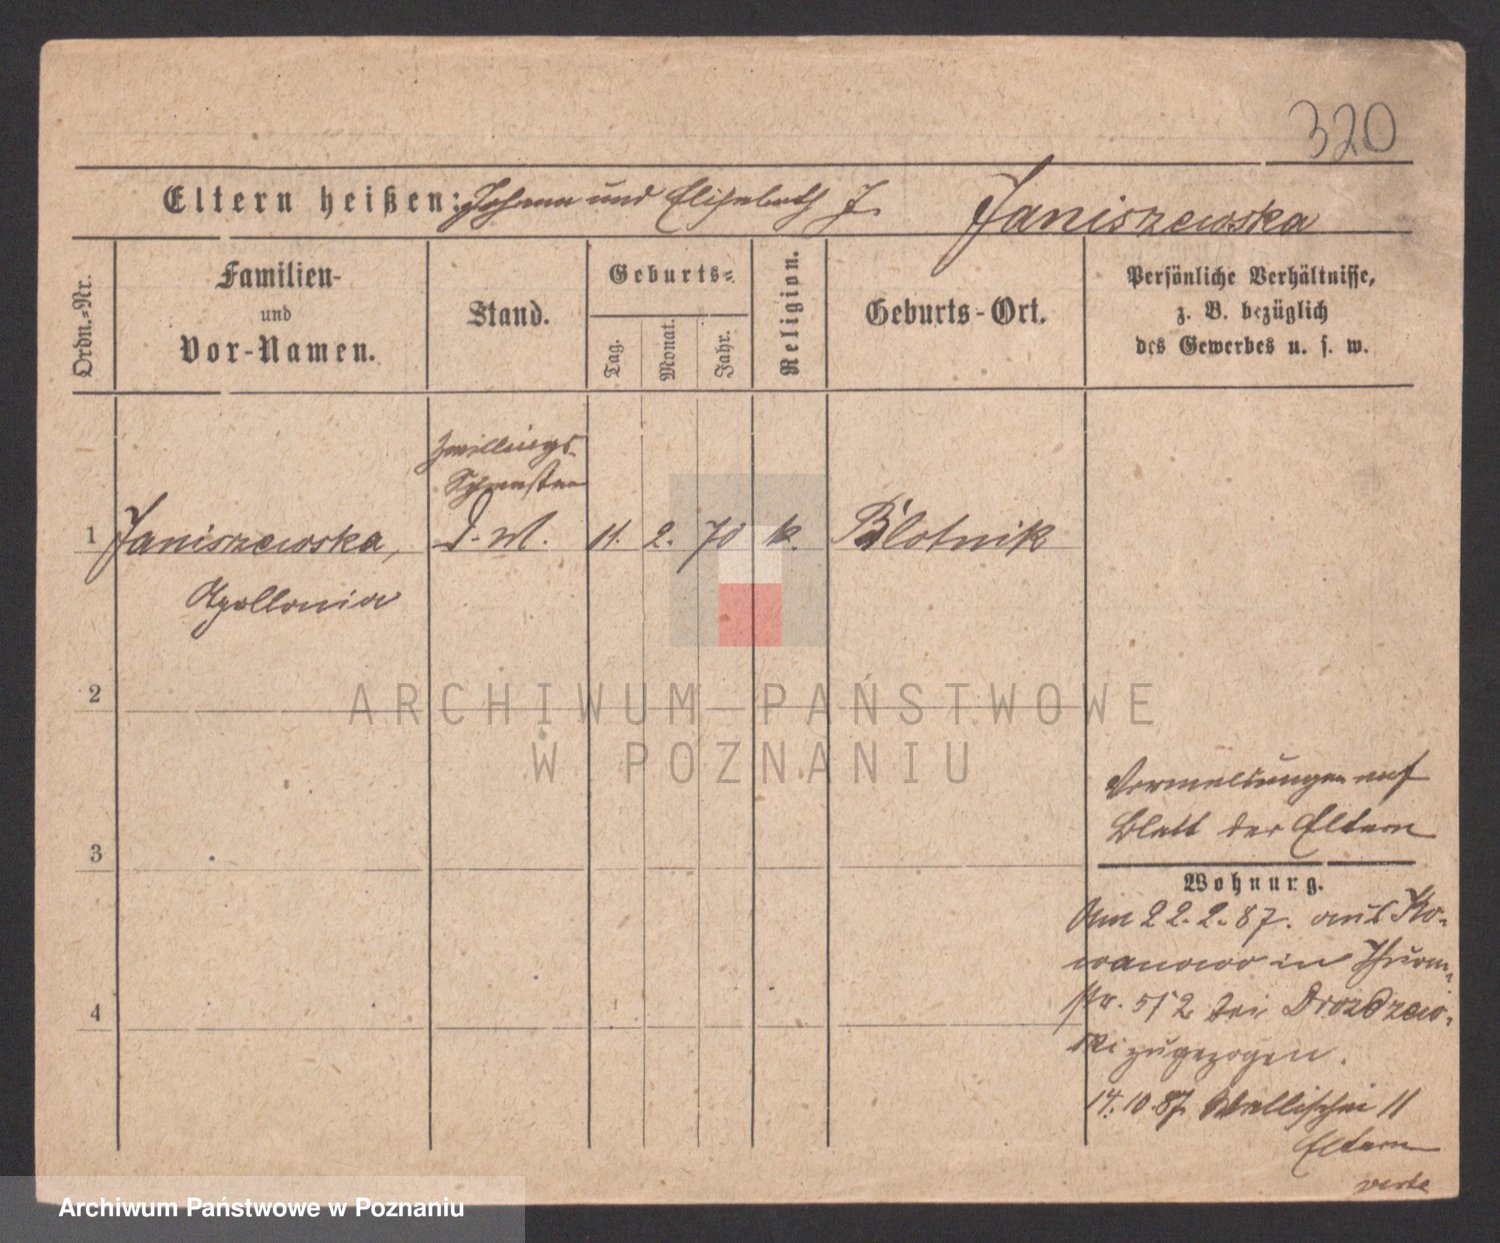 320
Eltern heißen: Johann und Elisabeth J. Janiszewska
Ordn.-Nr.
Familien-
und
Vor-Namen.
Stand.
Geburts-
Tag.
Monat.
Jahr.
Religion.
Geburts-Ort.
Persönliche Verhältnisse,
z. B. bezüglich
des Gewerbes u. s. w.
Zwillings-
Schwester
1 Janiszewska, D. M. 11. 2. 70 k. Blotnik
Apollonia
2
3
4
Vermeldungen auf
Blatt der Eltern
Wohnung.
Am 22.2.87. aus Ko-
wanowo in Thurm-
str. 5/2 bei Drozdzew-
ski zugezogen.
14.10.87 Wallischei 11
Eltern
verte
ARCHIWUM PAŃSTWOWE
W POZNANIU
Archiwum Państwowe w Poznaniu